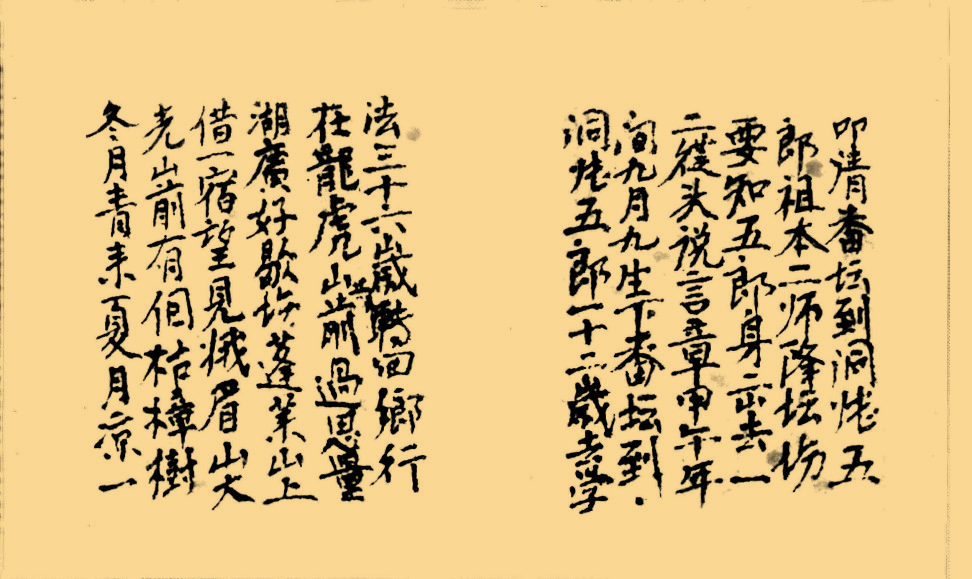 叩请番坛到洞㐌五
郎祖本二师降坛场
要知五郎身正去一
二從头说言章甲午年
间九月九生下番坛到
洞㐌五郎一十二歲去学
法三十六歲轉回鄉行
在龍虎山前過思量
湖廣好歇场蓬萊山上
借一宿望見峨眉山大
尭山前有個枯樟樹
冬月青来夏月凉一